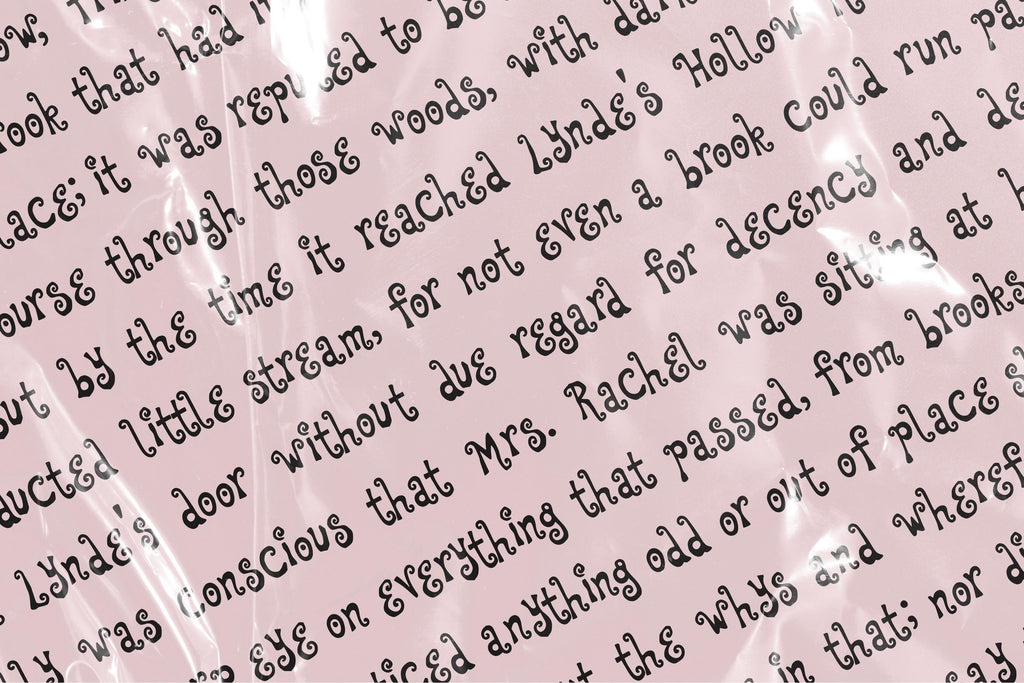 ow,
rook that had
lace; it was reputed to be
ourse through those woods, with dar
out by the time it reached Lynde's Hollow it
ducted little stream, for not even a brook could run pa
Lynde's door without due regard for decency and de
ly was conscious that Mrs. Rachel was sitting at h
rp eye on everything that passed, from brooks
ticed anything odd or out of place s
ut the whys and wheref
in that; nor di
say